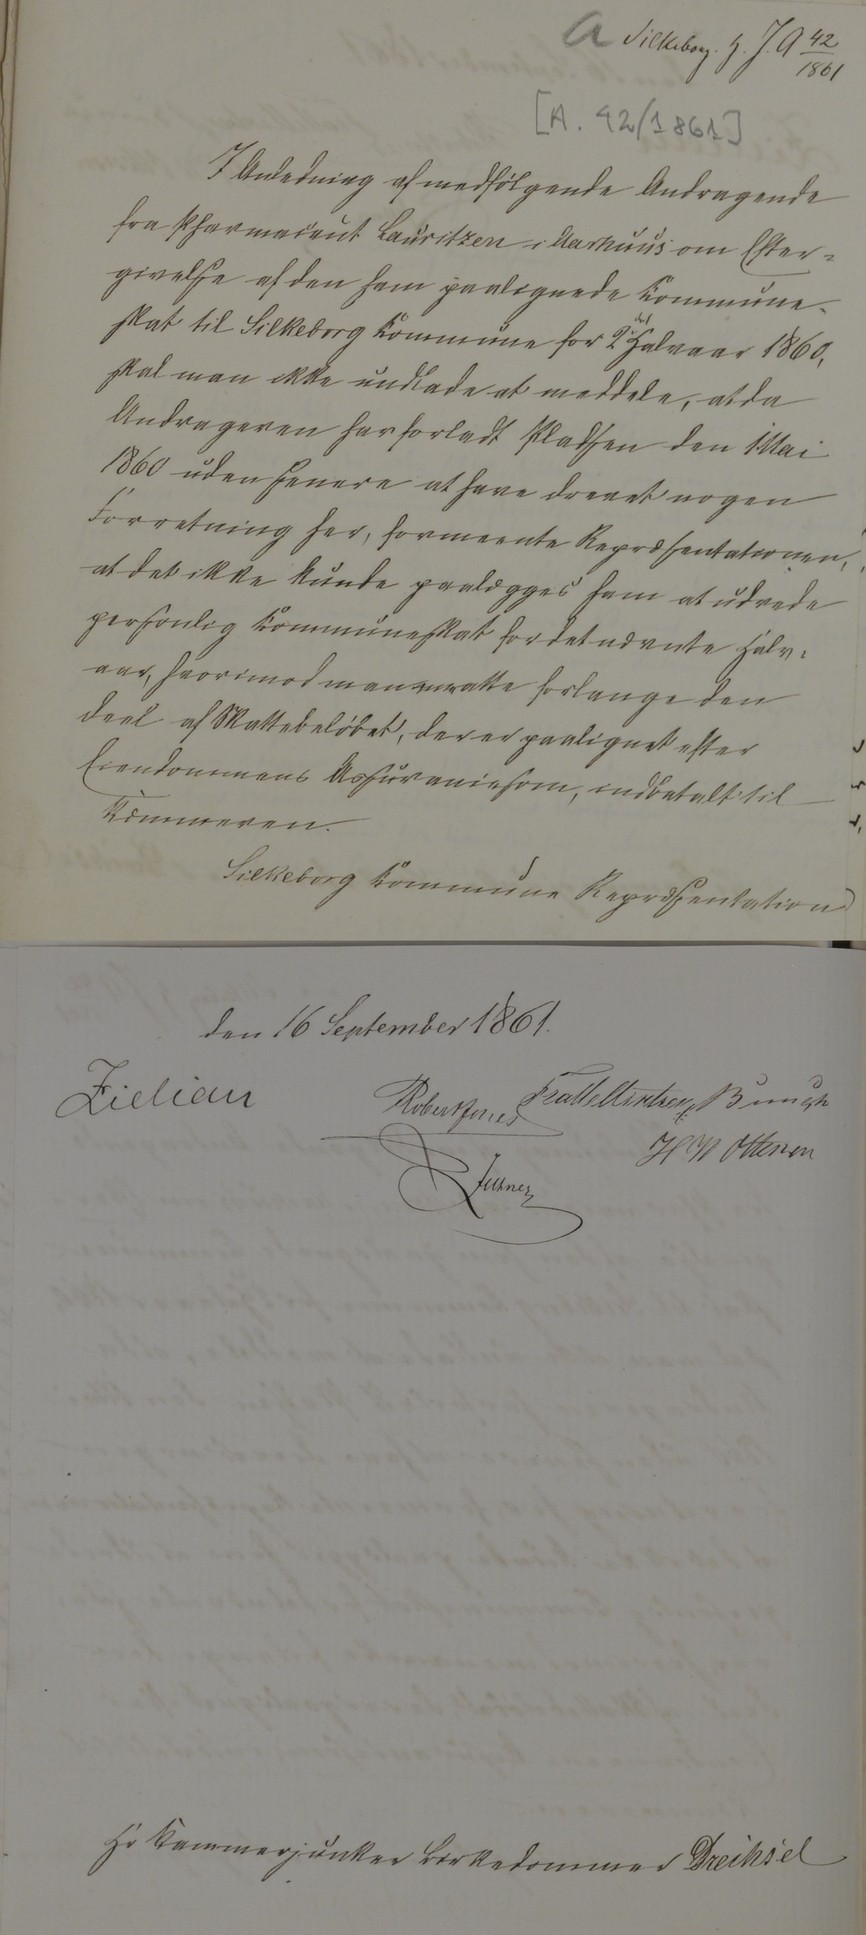 a Silkeborg. H. J. A 42/1861
[A. 42/1861]
I Anledning af medfølgende Andragende
fra Pharmaceut Lauritzen i Aarhuus om Efter-
givelse af den ham paalignede Kommune-
skat til Silkeborg Kommune for 2det Halvaar 1860,
skal man ikke undlade at meddele, at da
Andrageren har forladt Pladsen den 1 Mai
1860 uden senere at have drevet nogen
Forretning her, formeente Repræsentationen,
at det ikke kunde paalægges ham at udrede
personlig Kommuneskat for det nævnte Halv-
aar, hvorimod man maatte forlange den
Deel af Skattebeløbet, der er paalignet efter
Eiendommens Assurancesom, indbetalt til
Kæmneren.
Silkeborg Kommune Repræsentation
den 16 September 1861.
Zielian
Robert Jones
H M Ottesen
Hr Kammerjunker Birkedommer Dreiksel